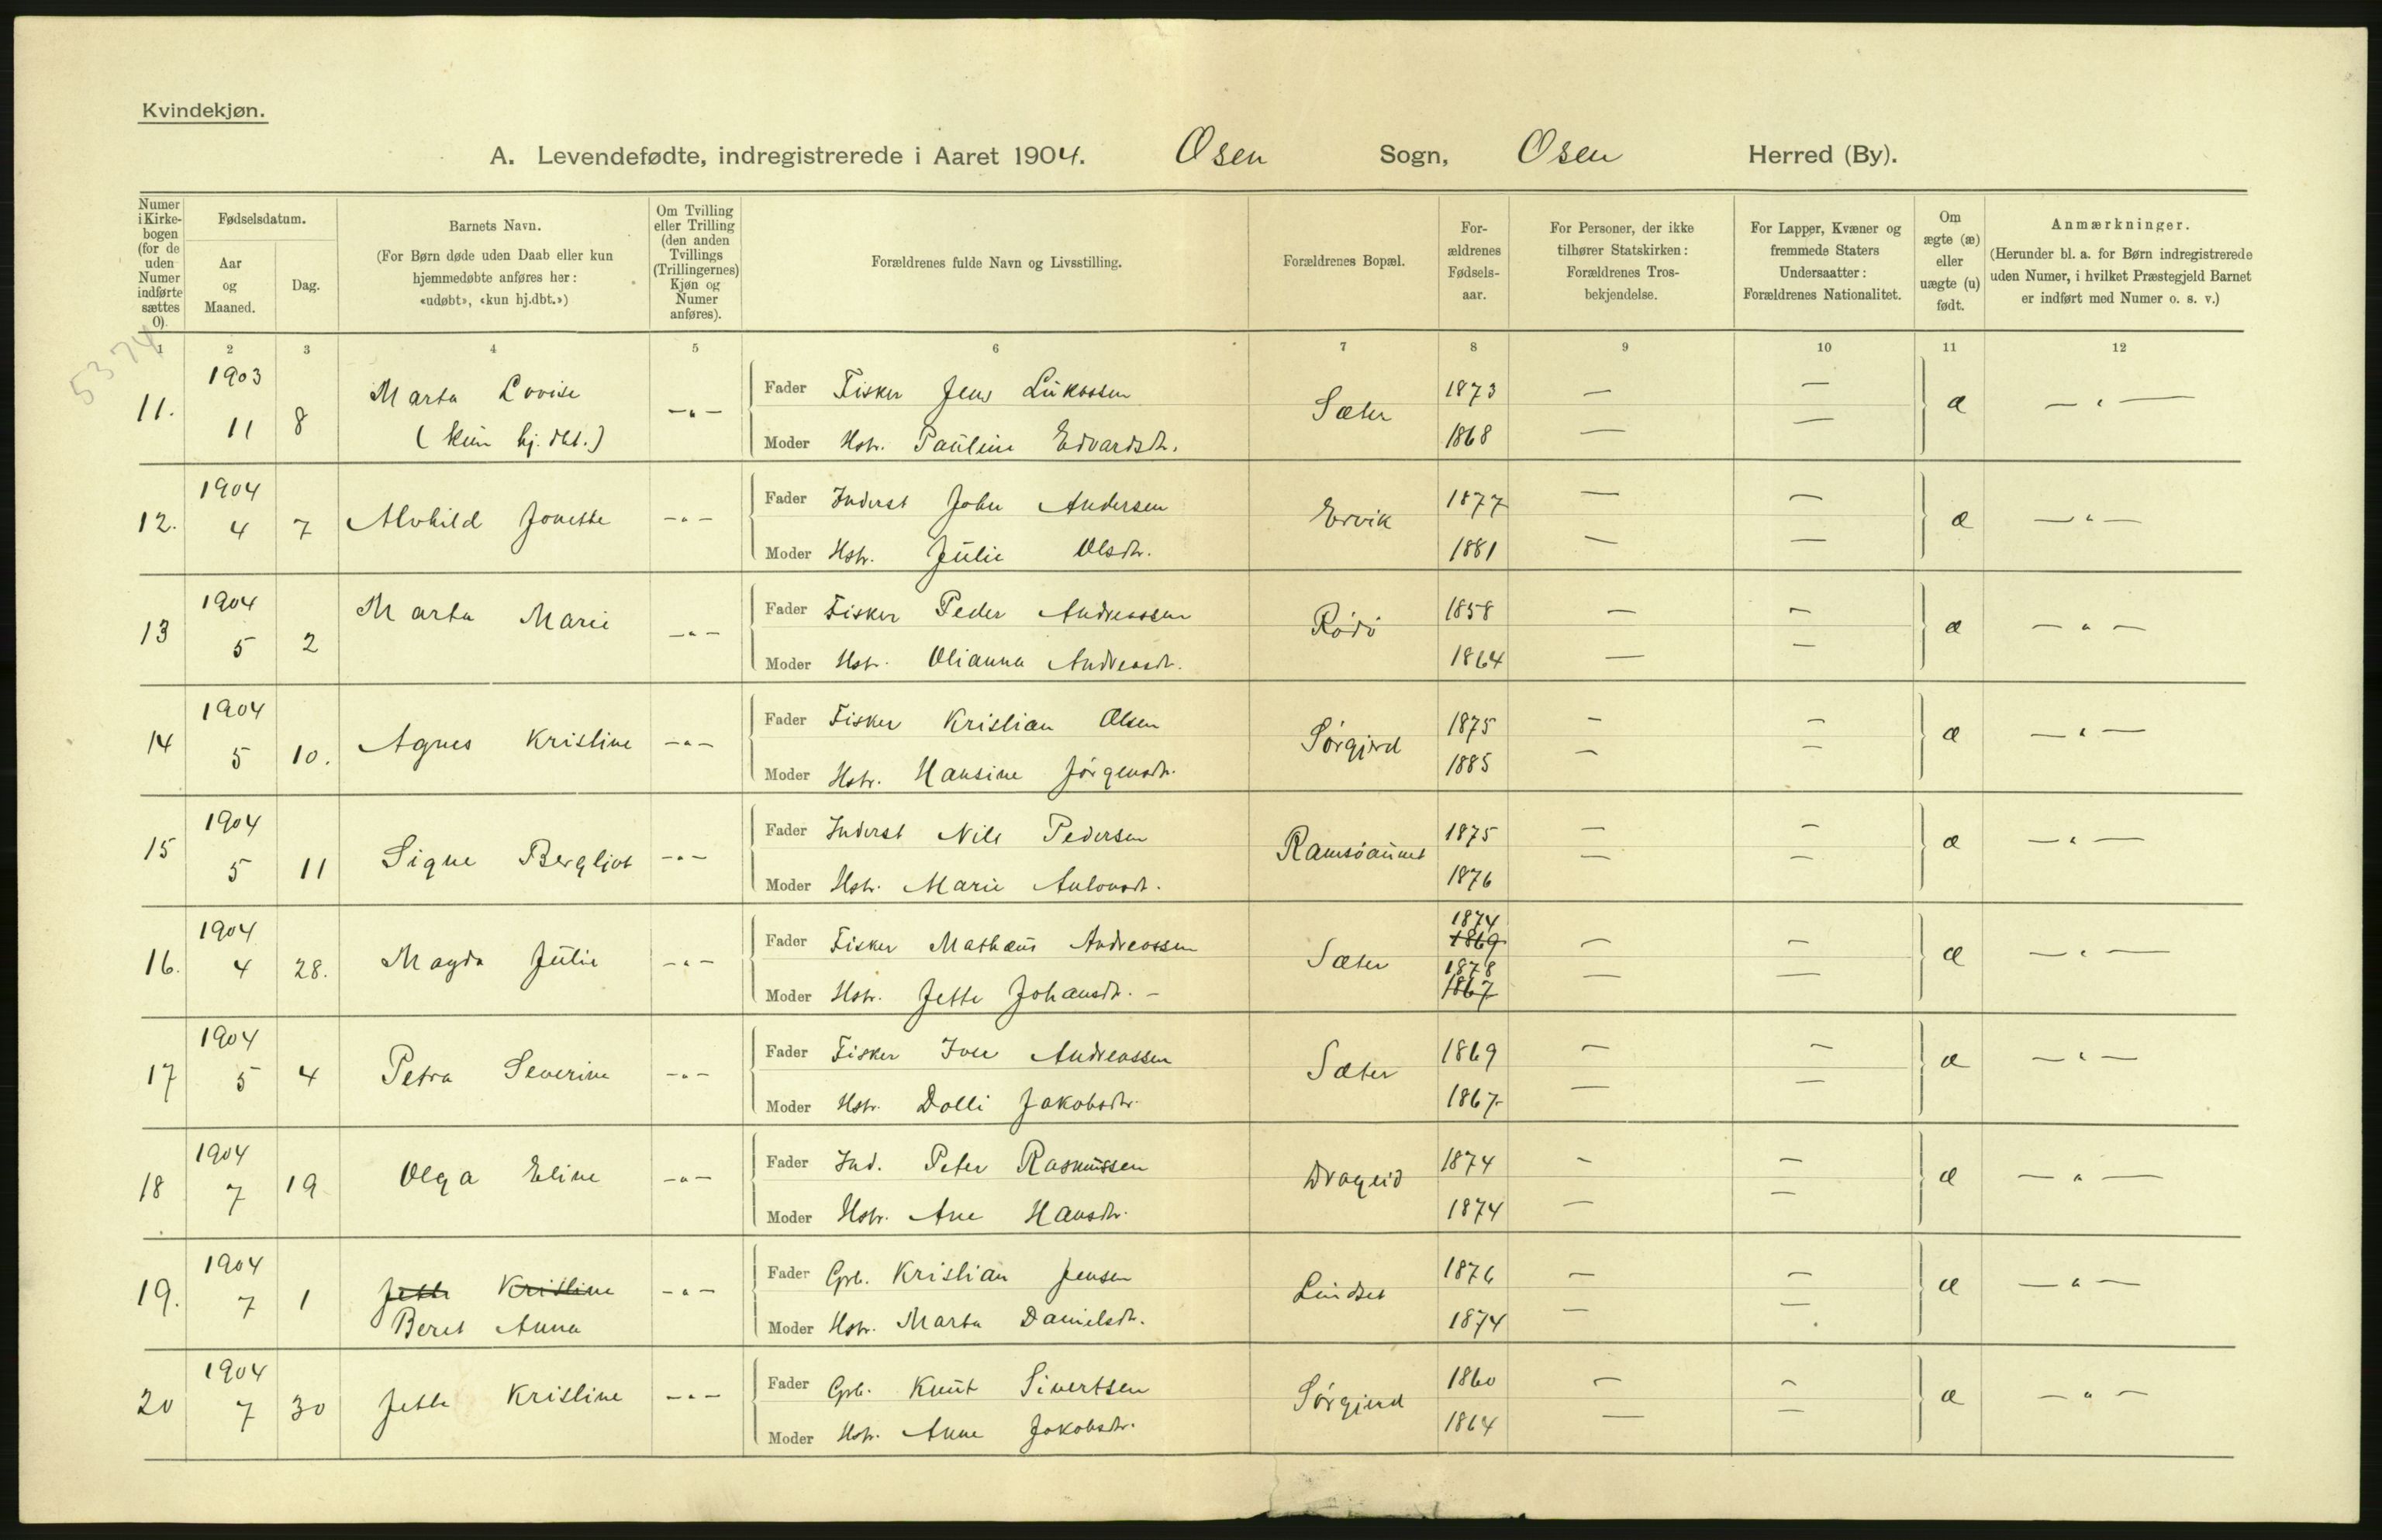 Kvindekjøn.
A. Levendefødte, indregistrerede i Aaret 1904. Osen Sogn, Osen Herred (By).
Numer i Kirke-bogen (for de uden Numer indførte sættes 0).
Fødselsdatum.
Aar og Maaned.
Dag.
Barnets Navn.
(For Børn døde uden Daab eller kun hjemmedøbte anføres her: «udøbt», «kun hj.dbt.»)
Om Tvilling eller Trilling (den anden Tvillings (Trillingernes) Kjøn og Numer anføres).
Forældrenes fulde Navn og Livsstilling.
Forældrenes Bopæl.
For-ældrenes Fødsels-aar.
For Personer, der ikke tilhører Statskirken: Forældrenes Tros-bekjendelse.
For Lapper, Kvæner og fremmede Staters Undersaatter: Forældrenes Nationalitet.
Om ægte (æ) eller uægte (u) født.
Anmærkninger.
(Herunder bl. a. for Børn indregistrerede uden Numer, i hvilket Præstegjeld Barnet er indført med Numer o. s. v.)
1 2 3 4 5 6 7 8 9 10 11 12
5374
11. 1903 11 8 Marta Lovise (kun hj. dbt.) -"- Fader Fisker Jens Lukassen Sæter 1873 — — æ — " —
Moder Hstr. Pauline Edvardsdtr. 1868 — —
12. 1904 4 7 Alvhild Jonette -"- Fader Inderst John Andersen Ervik 1877 — — æ — " —
Moder Hstr. Julie Olsdtr. 1881 — —
13 1904 5 2 Marta Marie -"- Fader Fisker Peder Andreassen Rödö 1858 — — æ — " —
Moder Hstr. Olianna Andreasdtr. 1864 — —
14 1904 5 10. Agnes Kristine -"- Fader Fisker Kristian Olsen Sörgjerd 1875 — — æ — " —
Moder Hstr. Hansine Jörgensdtr. 1885 — —
15 1904 5 11 Signe Bergljot -"- Fader Inderst Nils Pedersen Ramsöaunet 1875 — — æ — " —
Moder Hstr. Marie Antonsdtr. 1876 — —
16. 1904 4 28. Magda Julie -"- Fader Fisker Mathæus Andreassen Sæter 1874 1869 — — æ — " —
Moder Hstr. Jette Johansdtr. - 1878 1867 — —
17 1904 5 4 Petra Severine -"- Fader Fisker Iver Andreassen Sæter 1869 — — æ — " —
Moder Hstr. Dolli Jakobsdtr. 1867 — —
18 1904 7 19 Olga Eline -"- Fader Ind. Peter Rasmussen Drageid 1874 — — æ — " —
Moder Hstr. Ane Hansdtr. 1874 — —
19. 1904 7 1 Jette Kristine Beret Anna -"- Fader Gpb. Kristian Jensen Lindset 1876 — — æ — " —
Moder Hstr. Marta Danielsdtr. 1874 — —
20 1904 7 30 Jette Kristine -"- Fader Gpb. Knut Sivertsen Sörgjerd 1860 — — æ — " —
Moder Hstr. Anne Jakobsdtr. 1864 — —